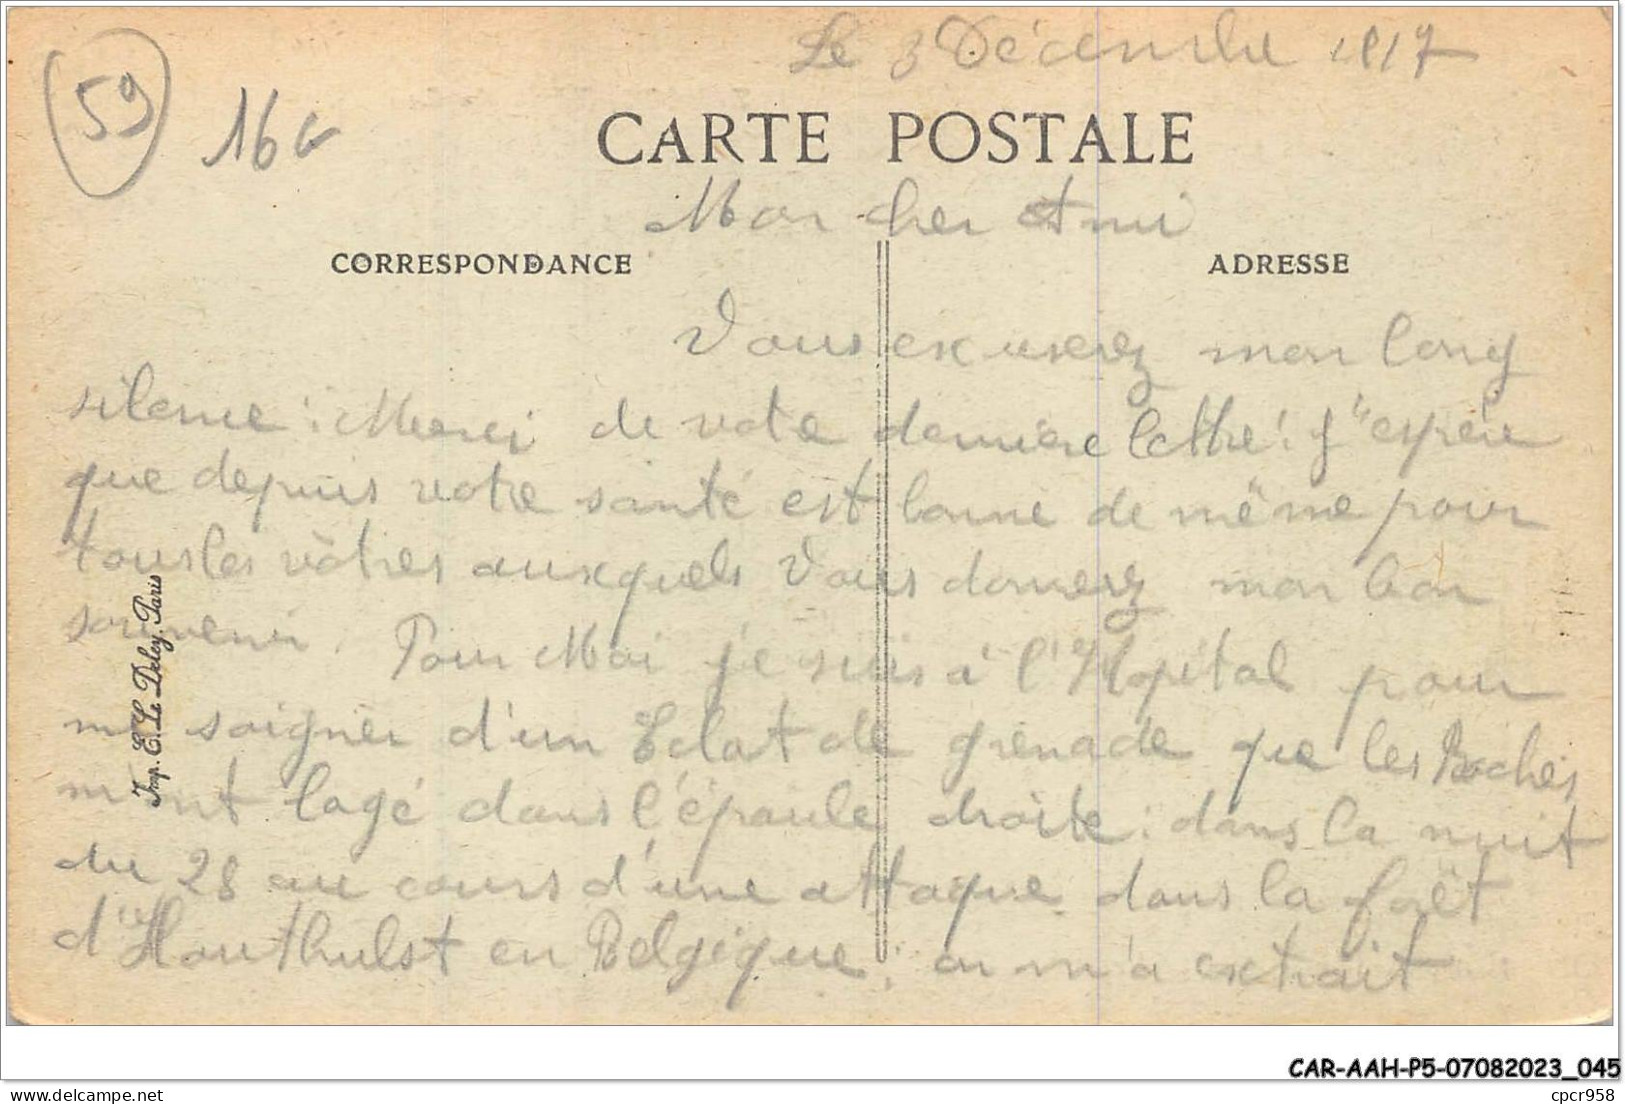 Le 3 Décembre 1917
59
16G
CARTE POSTALE
Mon cher Ami
CORRESPONDANCE
ADRESSE
Vous excuserez mon long
silence : Merci de votre dernière lettre ! J'espère
que depuis votre santé est bonne de même pour
tous les vôtres auxquels Vous donnerez mon bon
souvenir. Pour Moi je suis à l'Hopital pour
me soigner d'un Eclat de grenade que les Boches
m'ont logé dans l'épaule droite : dans la nuit
du 28 au cours d'une attaque dans la forêt
d'Houthulst en Belgique : on m'a extrait
Imp. E. Le Deley. Paris
CAR-AAH-P5-07082023_045
www.delcampe.net
cpcr958